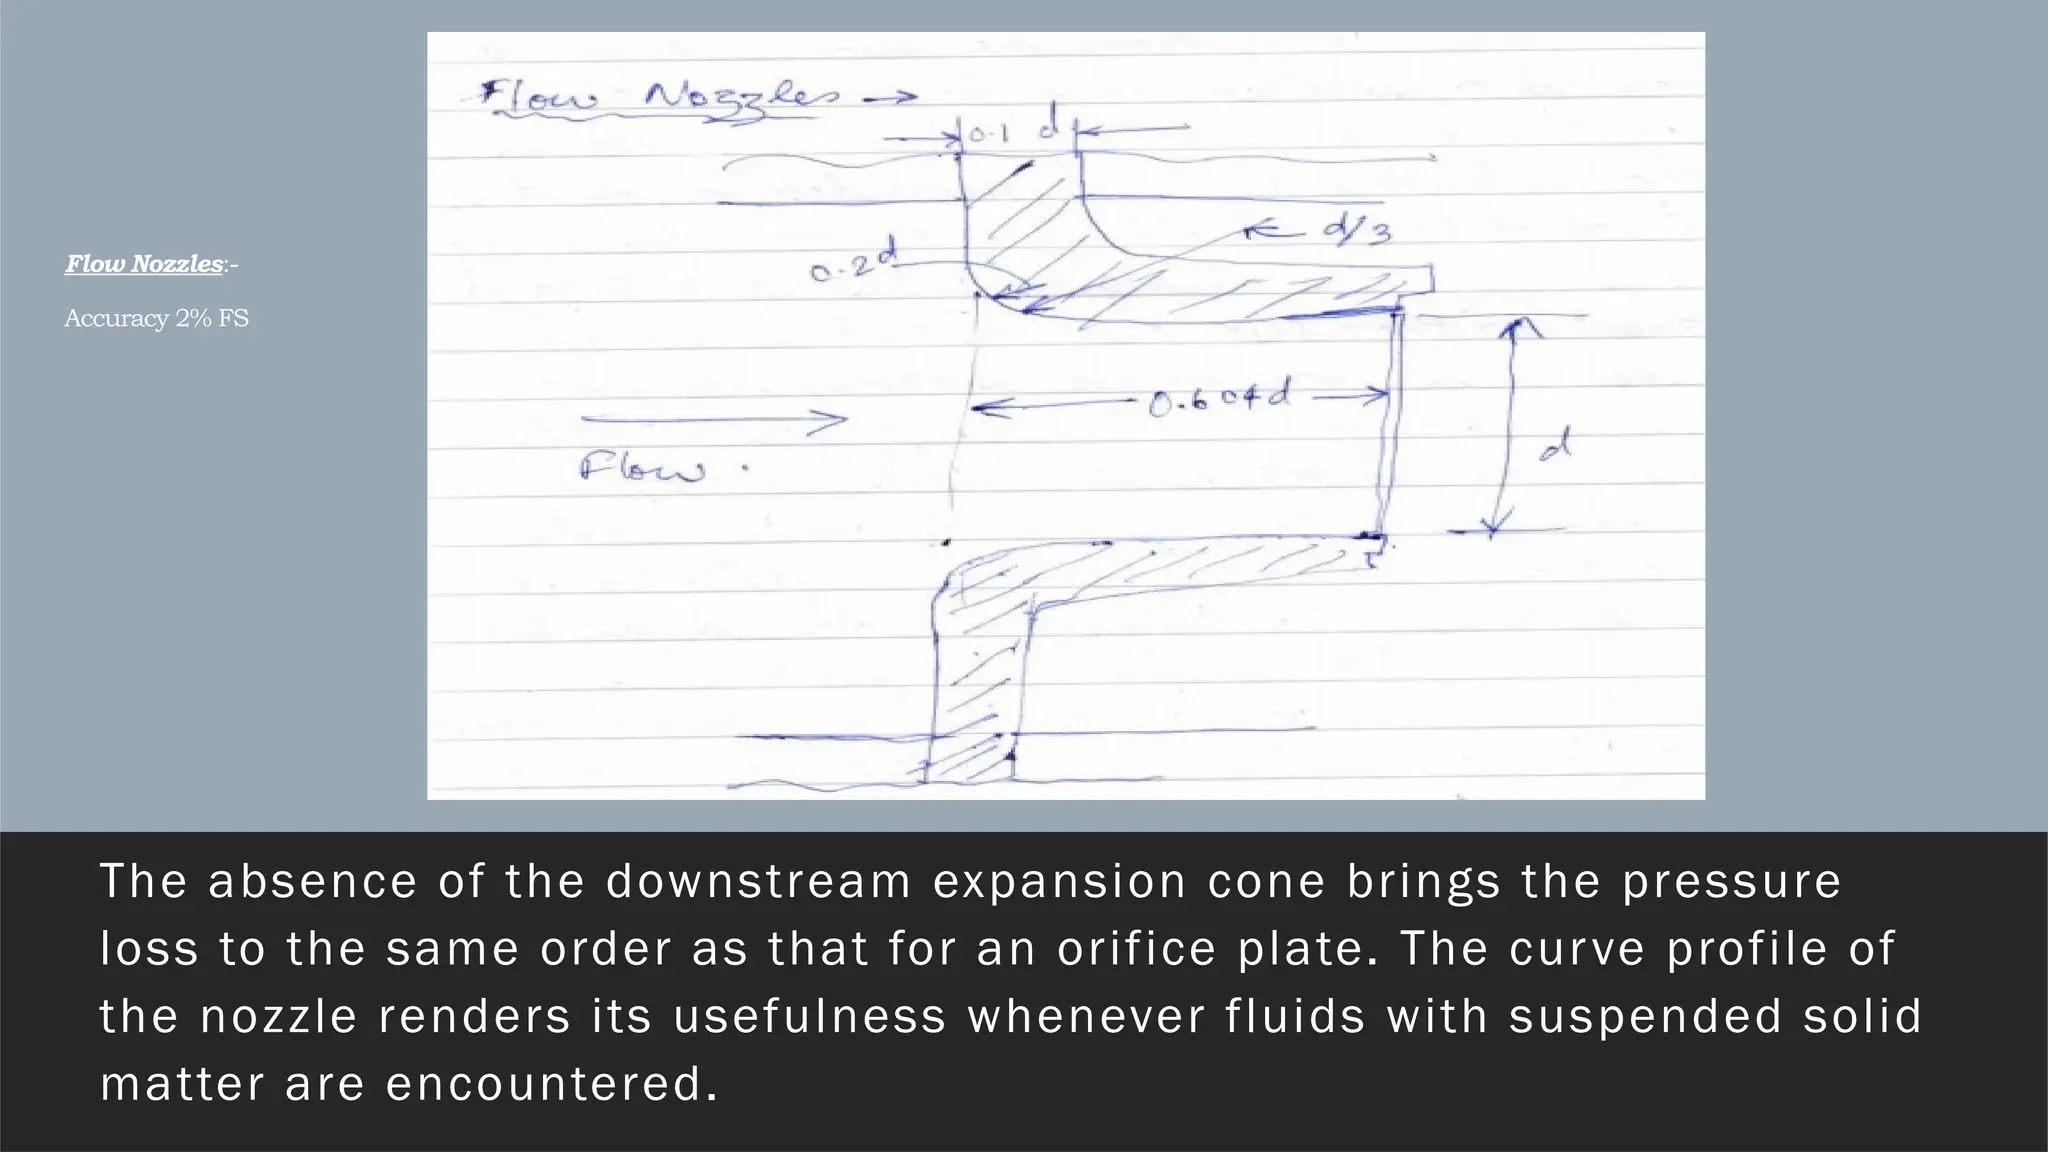 Flow Nozzles:-
Accuracy 2% FS
Flow Nozzles →
0.1 d
d/3
0.2d
0.604d
d
Flow .
The absence of the downstream expansion cone brings the pressure
loss to the same order as that for an orifice plate. The curve profile of
the nozzle renders its usefulness whenever fluids with suspended solid
matter are encountered.